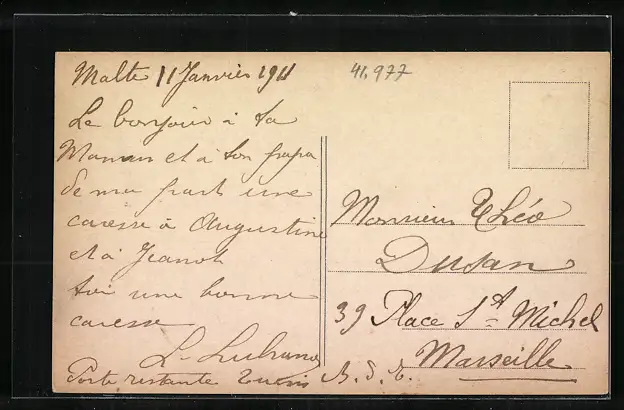 Malte 11 Janvier 1911
41.977
Le bonjour à ta
Maman et à ton papa
de ma part une
caresse à Augustine
et à Jeanot
toi une bonne
caresse
Poste restante Tunis
Monsieur Théo
Dusan
39 Place St Michel
Marseille
B. d. R.